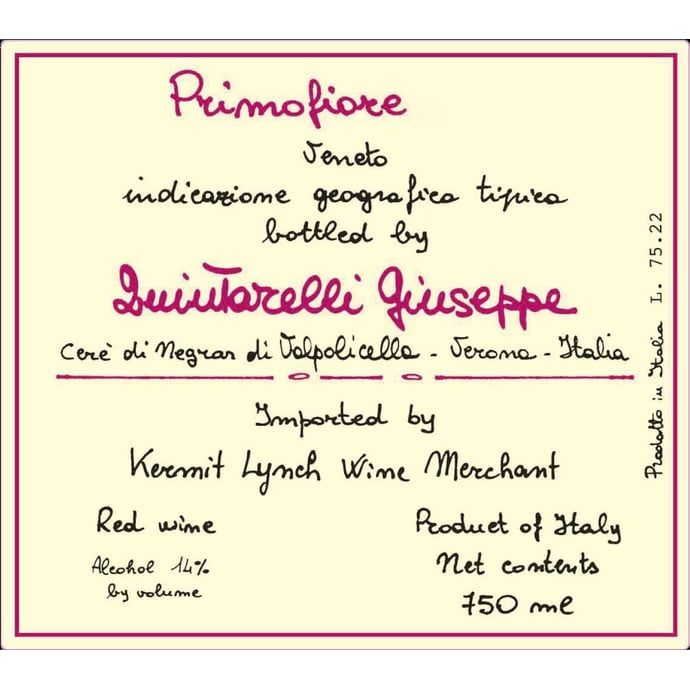 Primofiore
Veneto
indicazione geografica tipica
bottled by
Quintarelli Giuseppe
Cerè di Negrar di Valpolicella - Verona - Italia
Imported by
Kermit Lynch Wine Merchant
Red wine
Alcohol 14%
by volume
Product of Italy
Net contents
750 ml
Prodotto in Italia L. 75.22